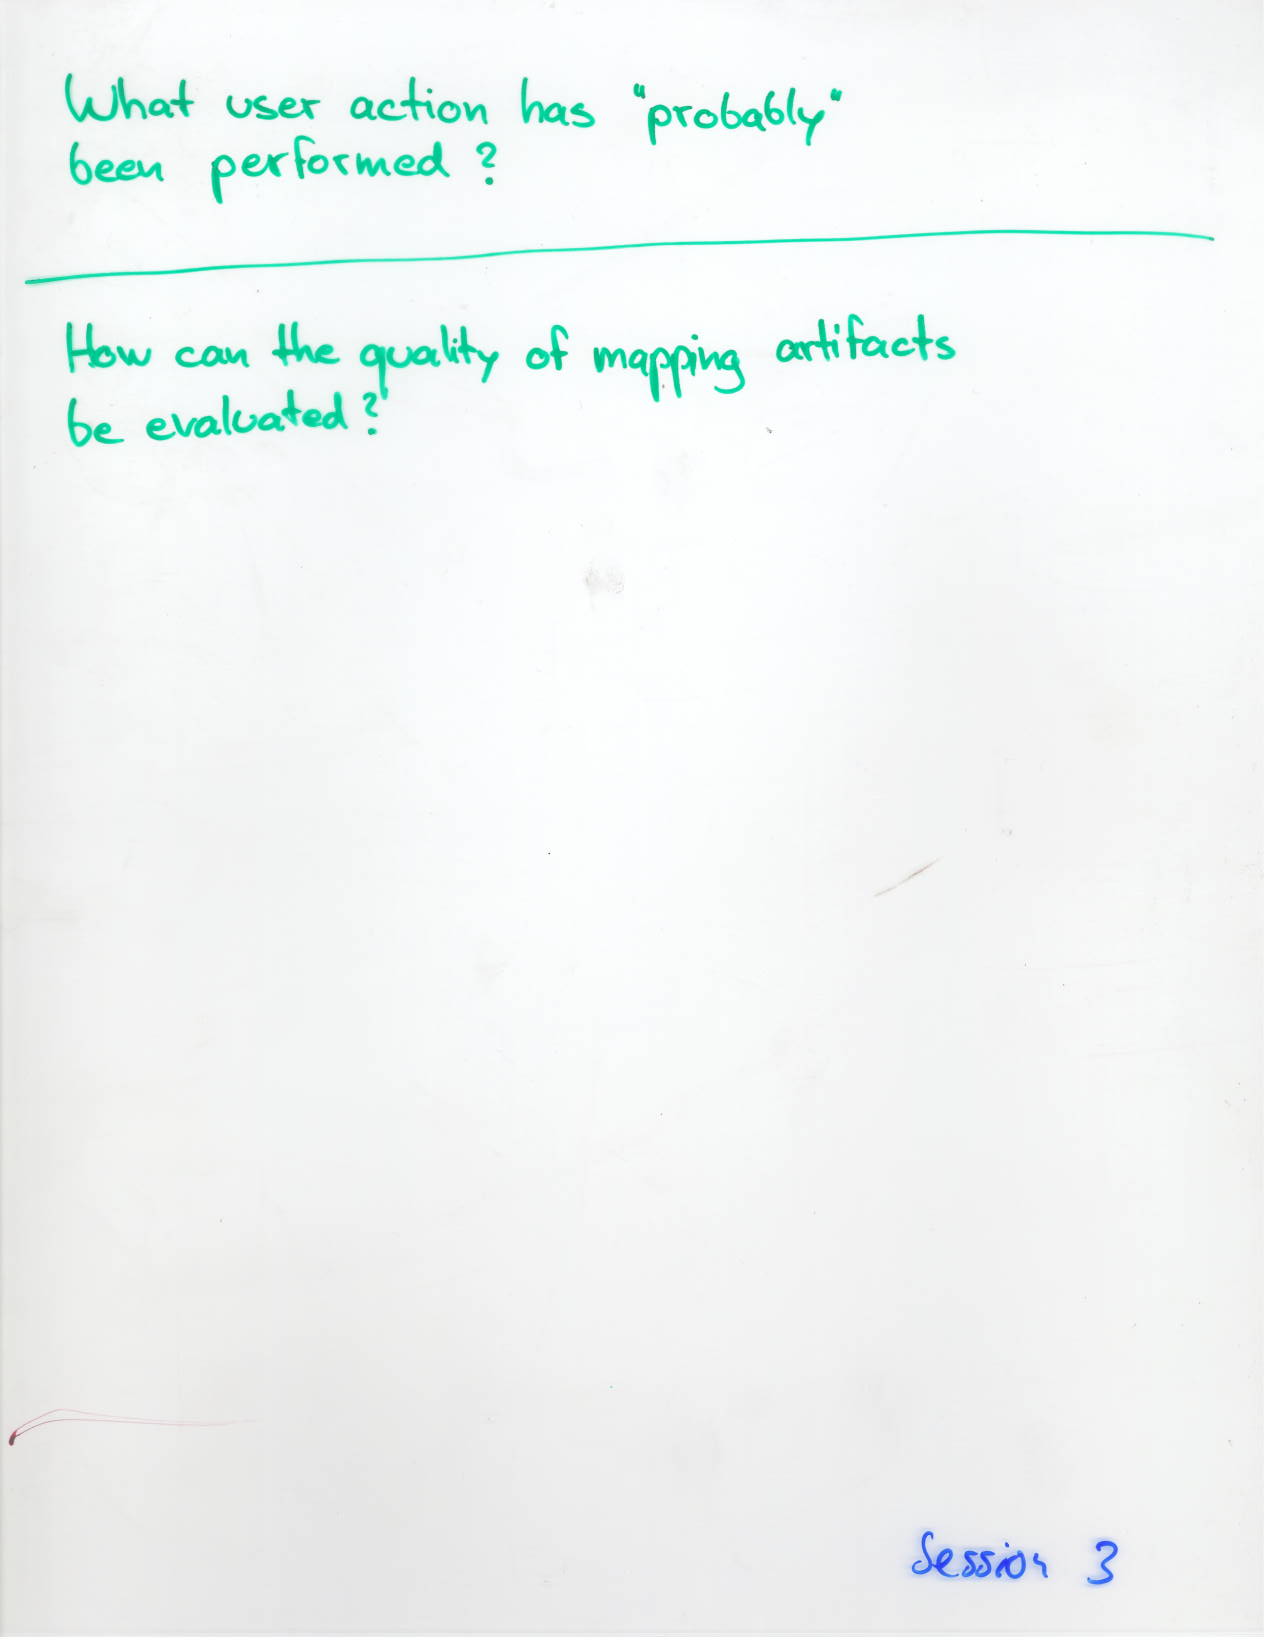 What user action has "probably"
been performed?
How can the quality of mapping artifacts
be evaluated?
Session 3